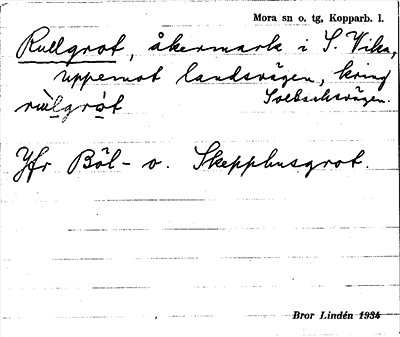 Mora sn o. tg, Kopparb. l.
Rullgrot, åkermark i S. Vika,
uppemot landsvägen, kring
rùlgròt Solbacksvägen.
Yfr Böl- o. Skepphusgrot.
Bror Lindén 1934